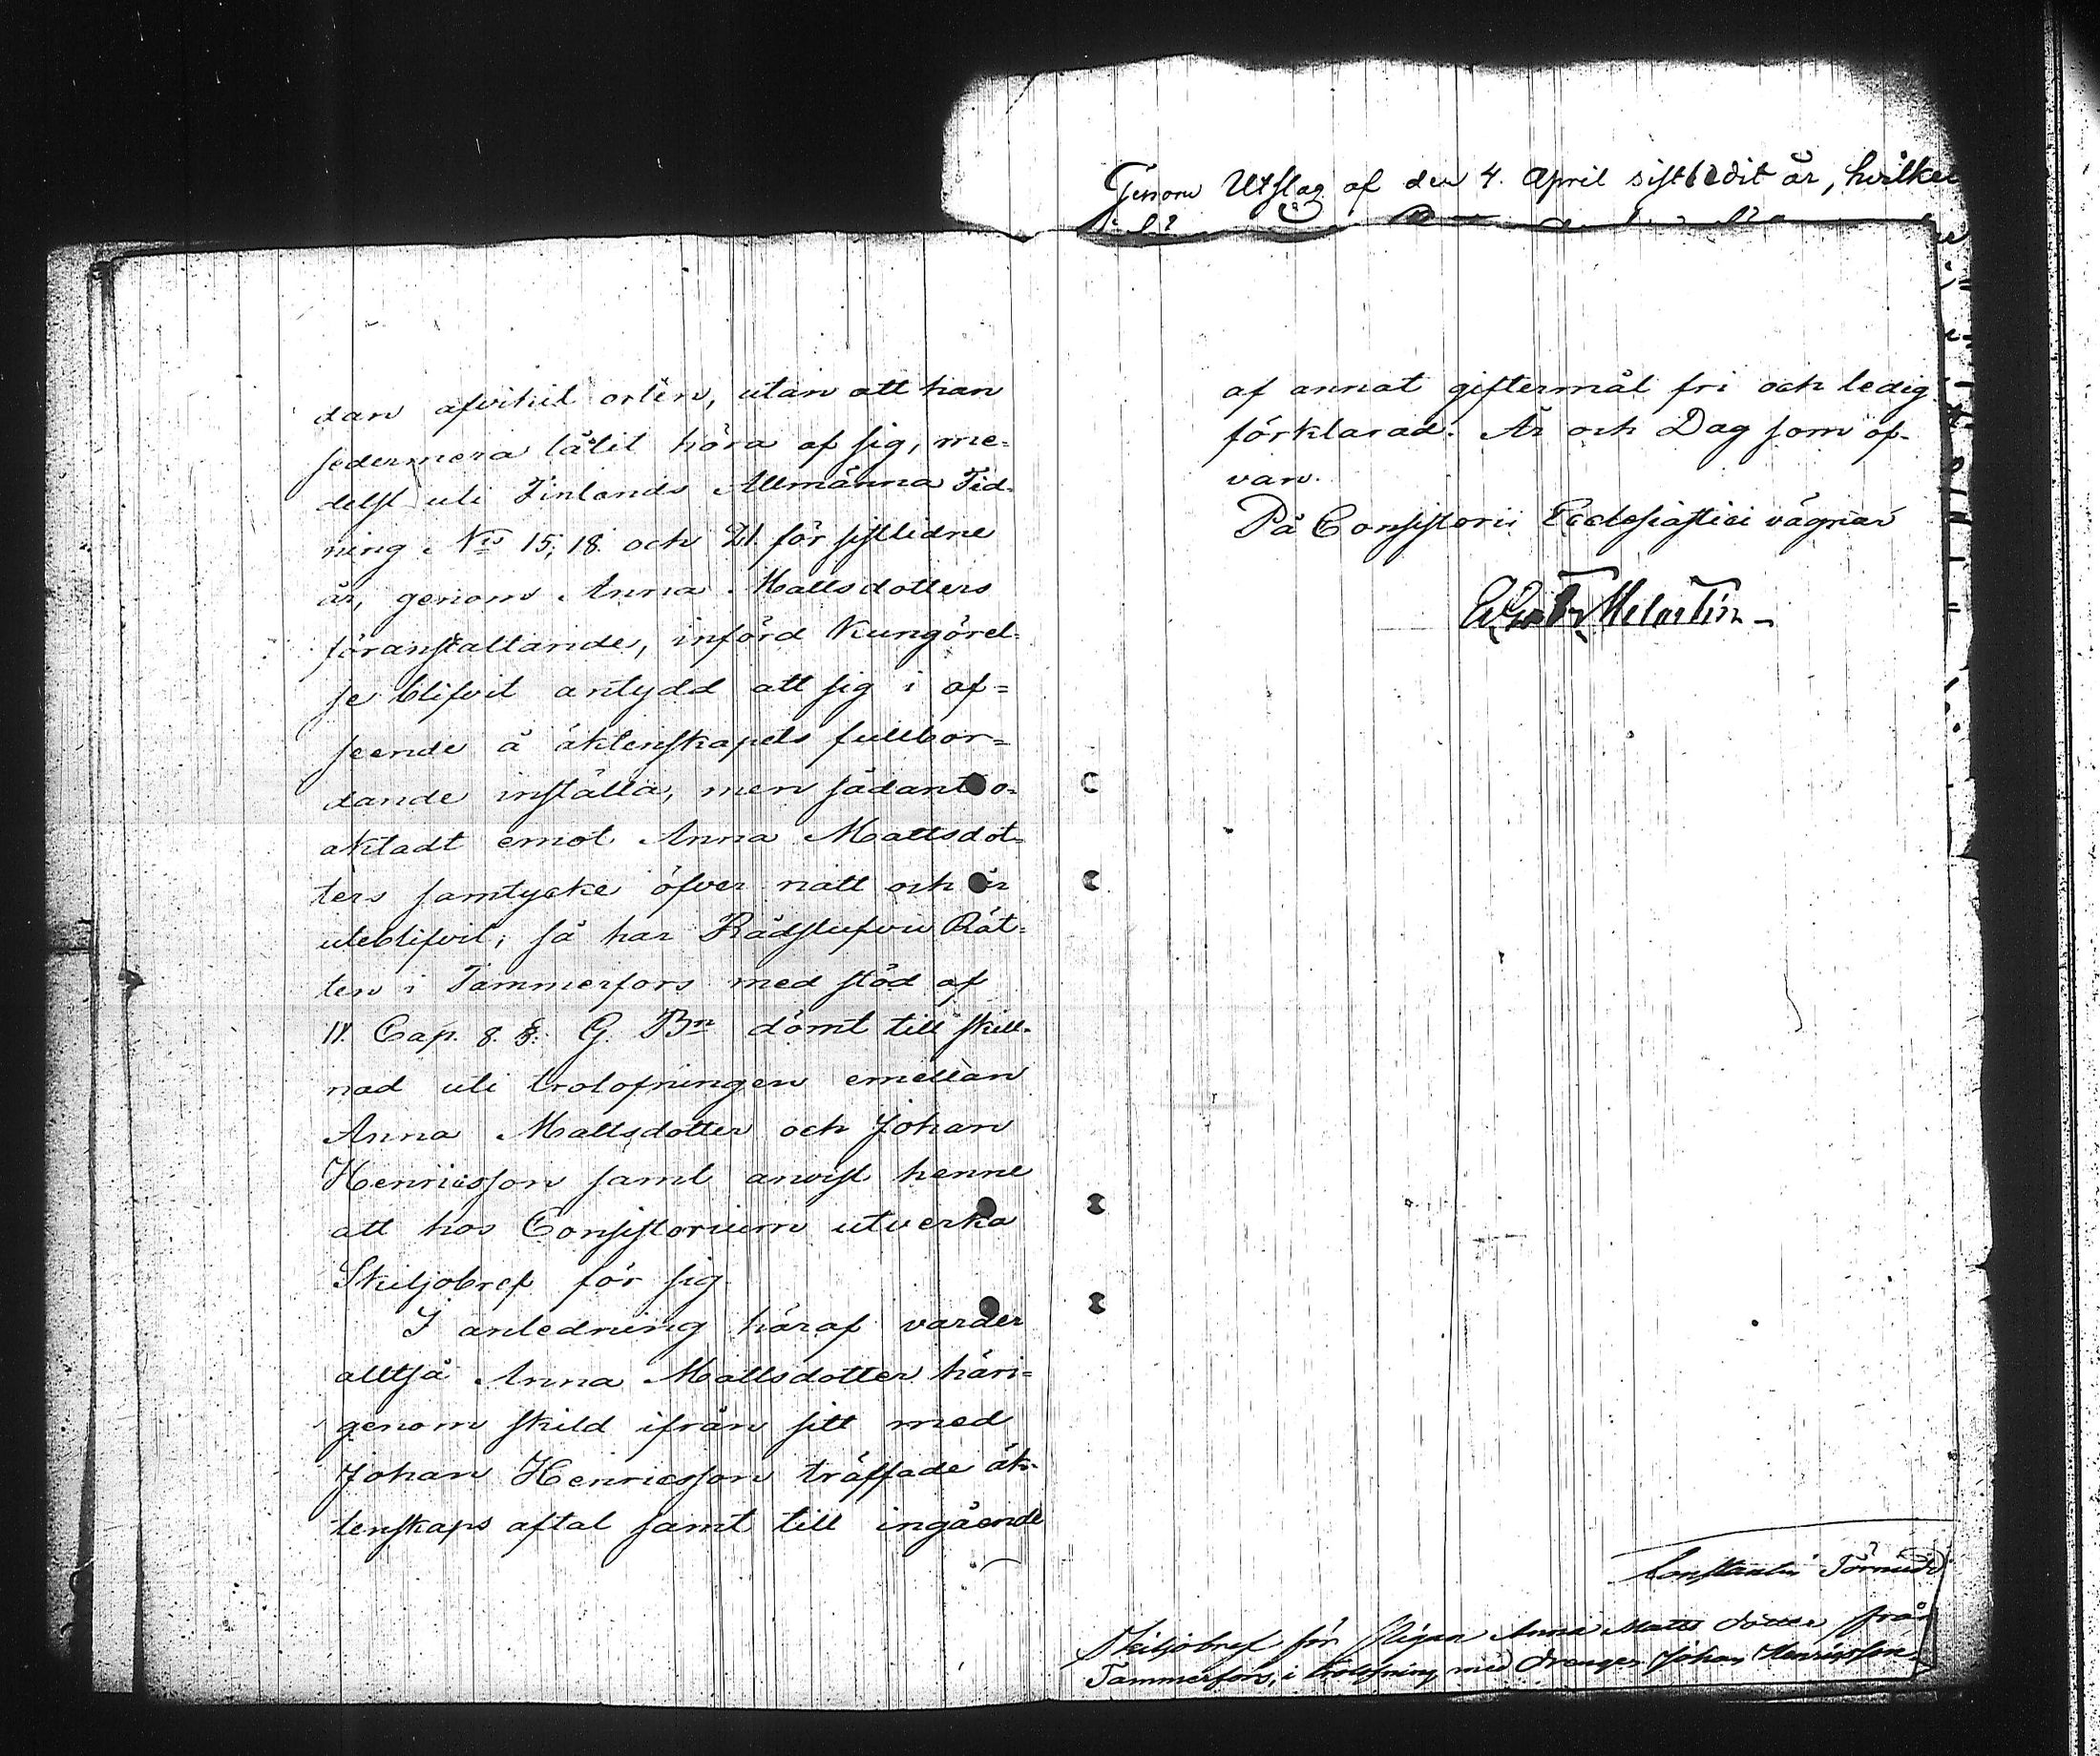 Genom Utslag af den 4. April sistledit år, hvilket
dan afvikit orten, utan att han
sedermera låtit höra af sig, me=
delst uti Finlands Allmänna Tid-
ning No 15, 18 och 21 för sistlidne
år, genom Anna Mattsdotters
föranstaltande, införd Kungörel-
se blifvit antydd att sig i af=
seende å äktenskapets fullbor=
dande inställa, men sådant o-
aktadt emot Anna Mattsdot-
ters samtycke öfver natt och år
uteblifvit; så har Rådstufvu Rät=
ten i Tammerfors med stöd af
IV. Cap. 8. §. G. Bn dömt till skill-
nad uti trolofningen emellan
Anna Mattsdotter och Johan
Henricsson samt anvist henne
att hos Consistorium utverka
Skiljobref för sig
I anledning häraf varder
alltså Anna Mattsdotter häri=
genom skild ifrån sitt med
Johan Henricsson träffade äk-
tenskaps aftal samt till ingående
af annat giftermål fri och ledig
förklarad. År och Dag som of-
van.
På Consistorii Ecclesiastici vägnar
Melartin
Constantin
Skiljobref för Pigan Anna Matts dotter från
Tammerfors, i trolofning med drengen Johan Henricsson